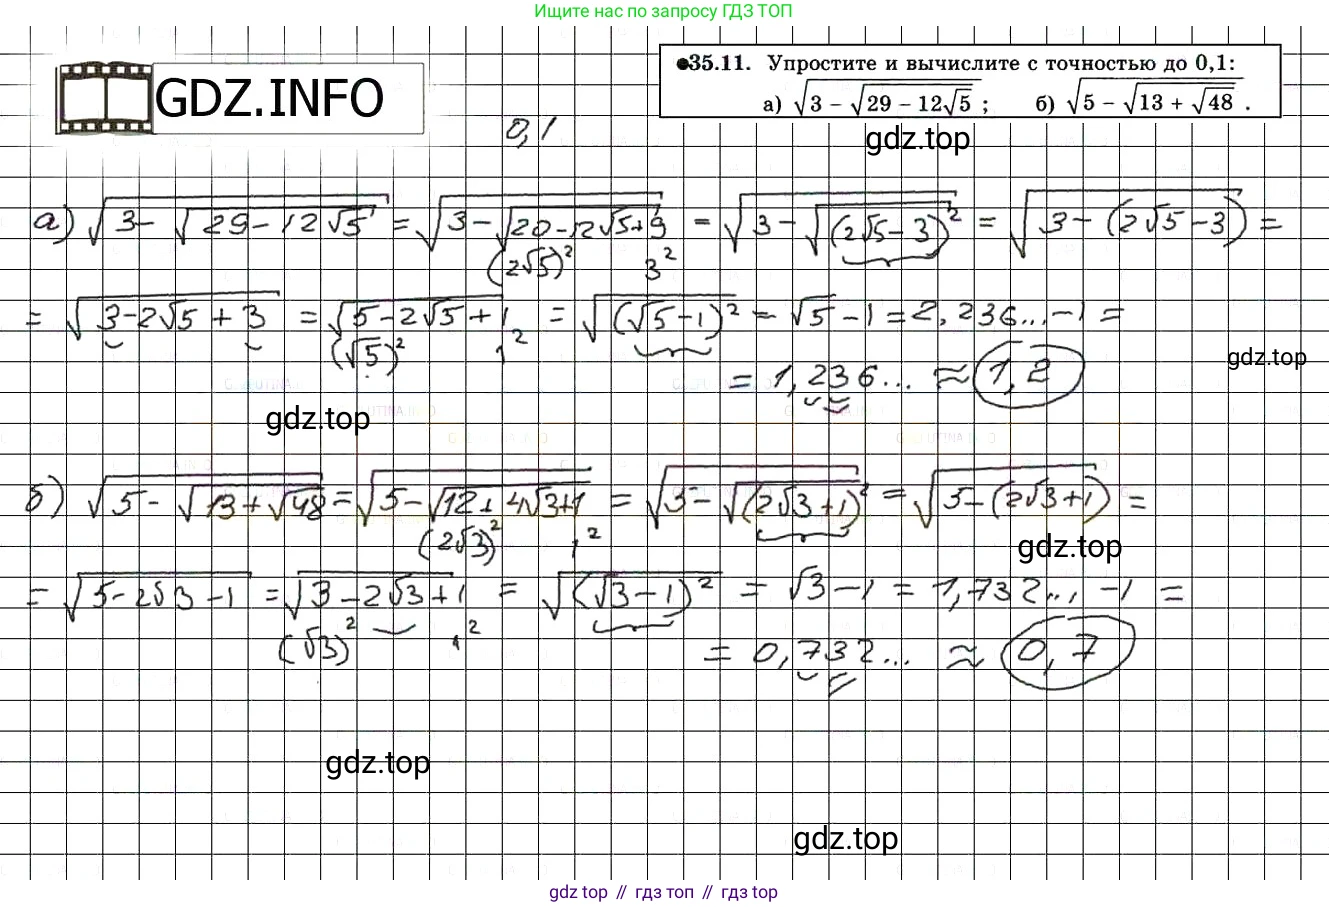 Ищите нас по запросу ГДЗ ТОП
GDZ.INFO
●35.11. Упростите и вычислите с точностью до 0,1:
а) √(3 − √(29 − 12√5)) ; б) √(5 − √(13 + √48)) .
0,1
gdz.top
а) √(3 − √(29 − 12√5)) = √(3 − √(20 − 12√5 + 9)) = √(3 − √((2√5 − 3)²)) = √(3 − (2√5 − 3)) =
(2√5)² 3²
= √(3 − 2√5 + 3) = √(5 − 2√5 + 1) = √((√5 − 1)²) = √5 − 1 = 2,236... − 1 =
(√5)² 1²
gdz.top
= 1,236... ≈ 1,2
gdz.top
б) √(5 − √(13 + √48)) = √(5 − √(12 + 4√3 + 1)) = √(5 − √((2√3 + 1)²)) = √(5 − (2√3 + 1)) =
(2√3)² 1²
gdz.top
= √(5 − 2√3 − 1) = √(3 − 2√3 + 1) = √((√3 − 1)²) = √3 − 1 = 1,732... − 1 =
(√3)² 1²
= 0,732... ≈ 0,7
gdz.top
gdz.top
gdz top // гдз топ // gdz top